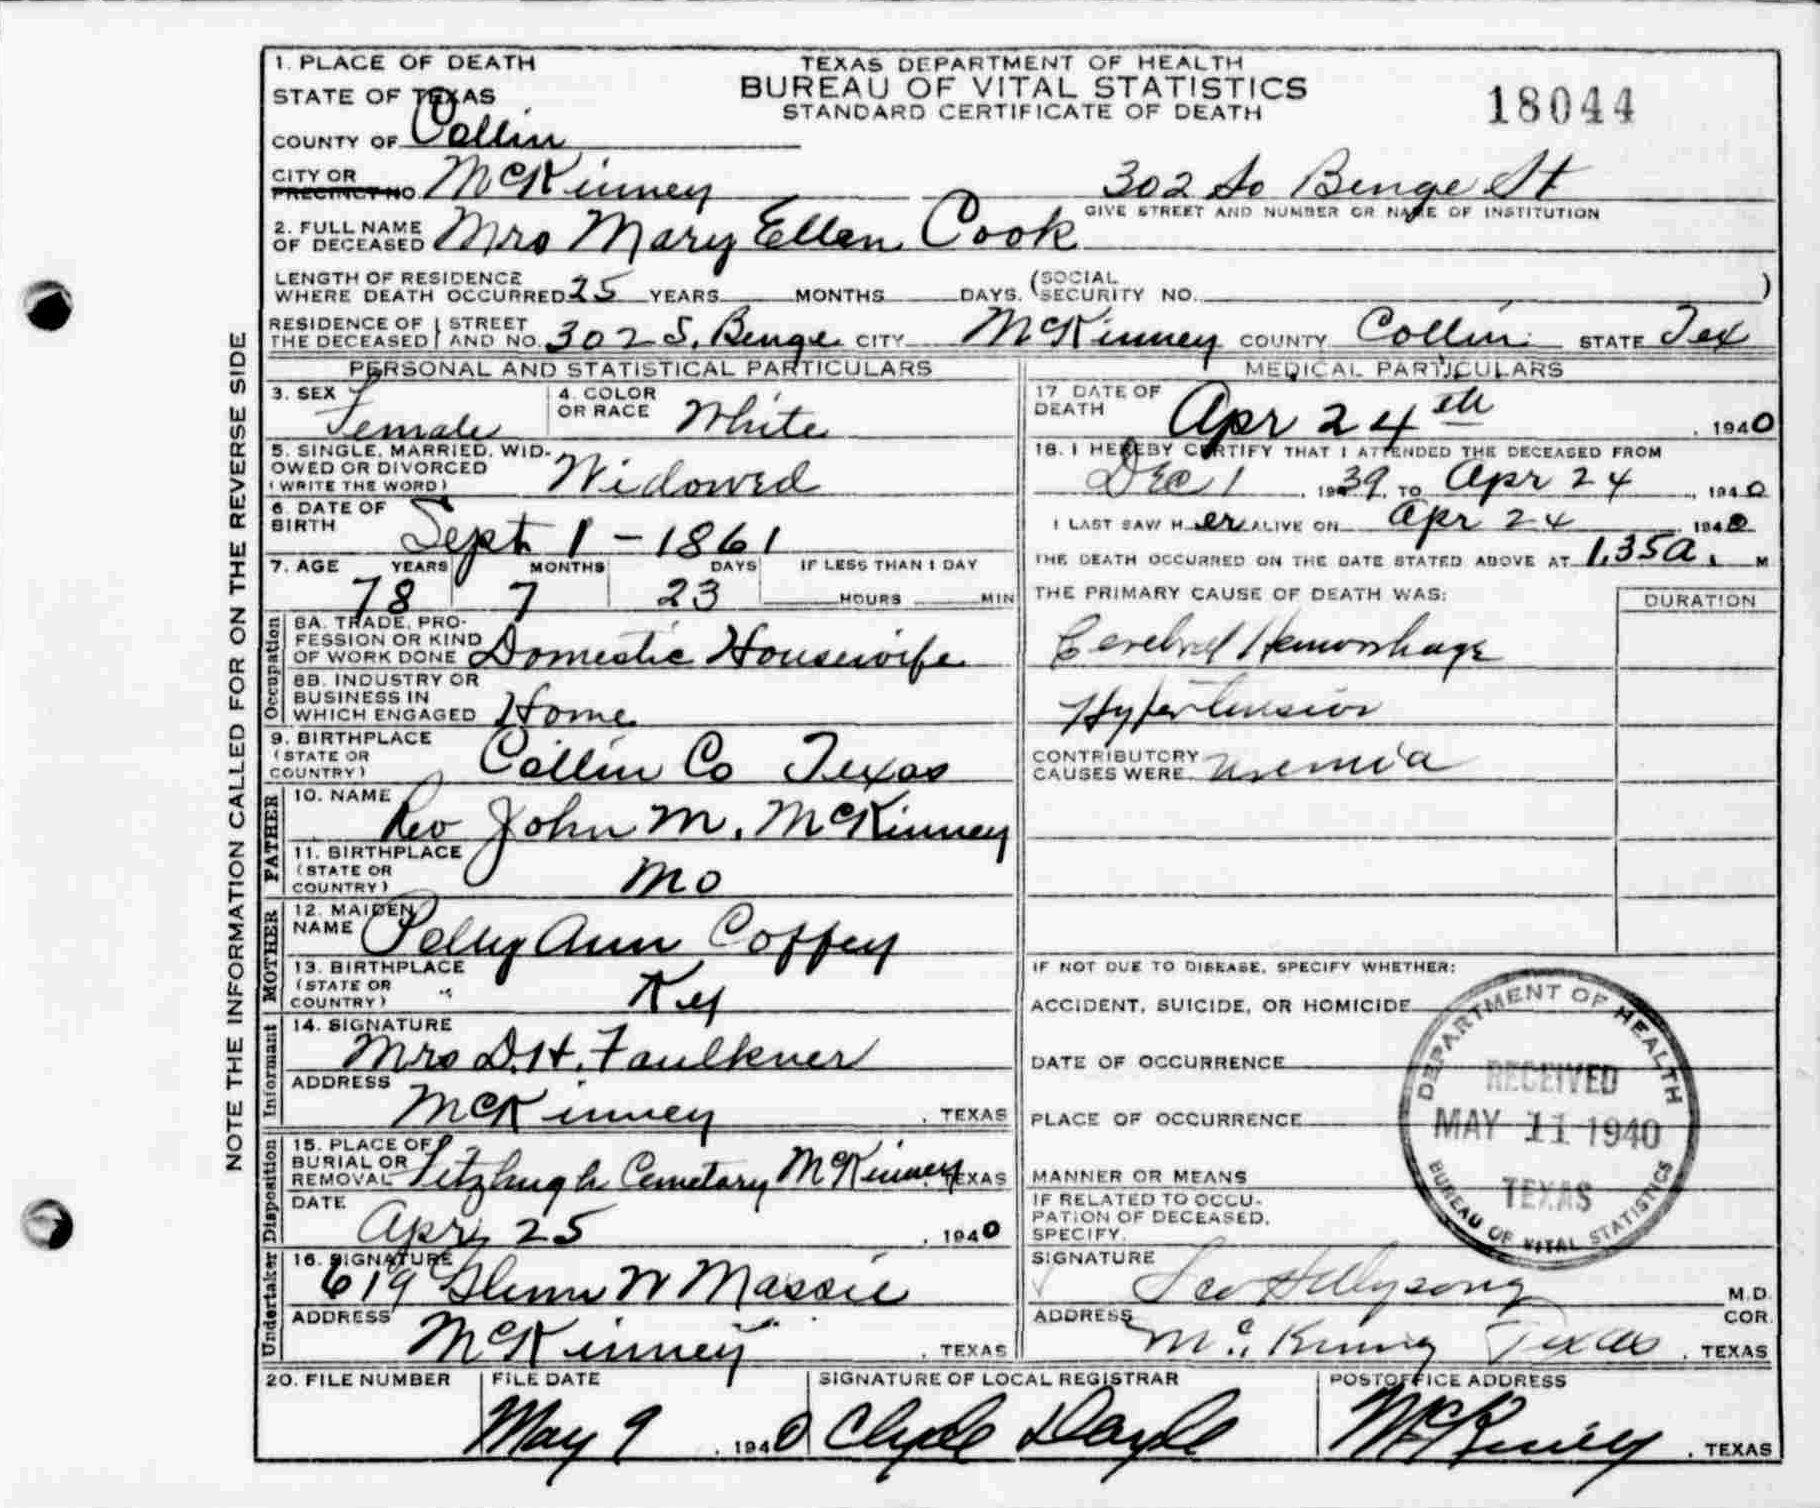 1. PLACE OF DEATH
STATE OF TEXAS
COUNTY OF Collin
CITY OR PRECINCT NO. McKinney
TEXAS DEPARTMENT OF HEALTH
BUREAU OF VITAL STATISTICS
STANDARD CERTIFICATE OF DEATH
18044
302 So Benge St
GIVE STREET AND NUMBER OR NAME OF INSTITUTION
2. FULL NAME OF DECEASED Mrs Mary Ellen Cook
LENGTH OF RESIDENCE WHERE DEATH OCCURRED 25 YEARS MONTHS DAYS. (SOCIAL SECURITY NO. )
RESIDENCE OF THE DECEASED STREET AND NO. 302 S. Benge CITY McKinney COUNTY Collin STATE Tex
NOTE THE INFORMATION CALLED FOR ON THE REVERSE SIDE
PERSONAL AND STATISTICAL PARTICULARS
3. SEX Female
4. COLOR OR RACE White
5. SINGLE, MARRIED, WIDOWED OR DIVORCED (WRITE THE WORD) Widowed
6. DATE OF BIRTH Sept 1 - 1861
7. AGE YEARS MONTHS DAYS IF LESS THAN 1 DAY
78 7 23 HOURS MIN
Occupation
8A. TRADE, PROFESSION OR KIND OF WORK DONE Domestic Housewife
8B. INDUSTRY OR BUSINESS IN WHICH ENGAGED Home
9. BIRTHPLACE (STATE OR COUNTRY) Collin Co Texas
FATHER
10. NAME Rev John M. McKinney
11. BIRTHPLACE (STATE OR COUNTRY) Mo
MOTHER
12. MAIDEN NAME Polly Ann Coffey
13. BIRTHPLACE (STATE OR COUNTRY) Ky
Informant
14. SIGNATURE Mrs D.H. Faulkner
ADDRESS McKinney, TEXAS
Disposition
15. PLACE OF BURIAL OR REMOVAL Fitzhugh Cemetary McKinney, TEXAS
DATE Apr 25, 1940
Undertaker
16. SIGNATURE 619 Glenn W Massie
ADDRESS McKinney, TEXAS
MEDICAL PARTICULARS
17 DATE OF DEATH Apr 24th, 1940
18. I HEREBY CERTIFY THAT I ATTENDED THE DECEASED FROM
Dec 1, 1939, TO Apr 24, 1940
I LAST SAW H er ALIVE ON Apr 24 1940
THE DEATH OCCURRED ON THE DATE STATED ABOVE AT 1.35 a. M
THE PRIMARY CAUSE OF DEATH WAS: DURATION
Cerebral Hemorrhage
Hypertension
CONTRIBUTORY CAUSES WERE Uremia
IF NOT DUE TO DISEASE, SPECIFY WHETHER:
ACCIDENT, SUICIDE, OR HOMICIDE
DATE OF OCCURRENCE
PLACE OF OCCURRENCE
MANNER OR MEANS
IF RELATED TO OCCUPATION OF DECEASED, SPECIFY.
DEPARTMENT OF HEALTH
RECEIVED
MAY 11 1940
TEXAS
BUREAU OF VITAL STATISTICS
SIGNATURE M.D.
COR.
ADDRESS McKinney Texas, TEXAS
20. FILE NUMBER
FILE DATE May 9, 1940
SIGNATURE OF LOCAL REGISTRAR Clyde Doyle
POSTOFFICE ADDRESS McKinney, TEXAS